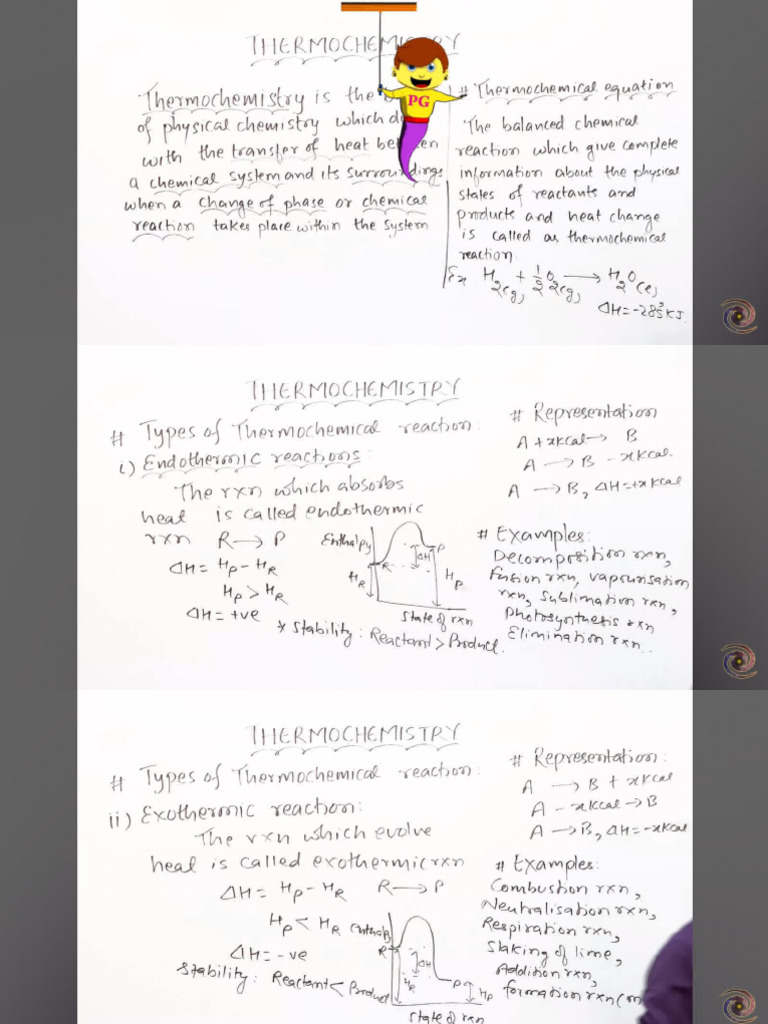 THERMOCHEMISTRY
Thermochemistry is the
of physical chemistry which
with the transfer of heat between
a chemical system and its surroundings
when a change of phase or chemical
reaction takes place within the system
PG
# Thermochemical equation
The balanced chemical
reaction which give complete
information about the physical
states of reactants and
products and heat change
is called as thermochemical
reaction.
Ex H2(g) + 1/2 O2(g) → H2O(l)
ΔH = -285 KJ.
THERMOCHEMISTRY
# Types of Thermochemical reaction:
i) Endothermic reactions:
The rxn which absorbs
heat is called endothermic
rxn R → P
ΔH = HP - HR
HP > HR
ΔH = +ve
Enthalpy
R
P
ΔH
HR
HP
State of rxn
* Stability: Reactant > Product.
# Representation
A + xkcal → B
A → B - xkcal.
A → B, ΔH = +xkcal
# Examples:
Decomposition rxn,
Fusion rxn, vapourisation
rxn, sublimation rxn,
photosynthesis rxn
Elimination rxn..
THERMOCHEMISTRY
# Types of Thermochemical reaction:
ii) Exothermic reaction:
The rxn which evolve
heat is called exothermic rxn
ΔH = HP - HR R → P
HP < HR
ΔH = -ve
Stability: Reactant < Product
Enthalpy
R
ΔH
HR
P
HP
State of rxn
# Representation:
A → B + xkcal
A - xkcal → B
A → B, ΔH = -xkcal
# Examples:
Combustion rxn,
Neutralisation rxn,
Respiration rxn,
slaking of lime,
Addition rxn,
formation rxn